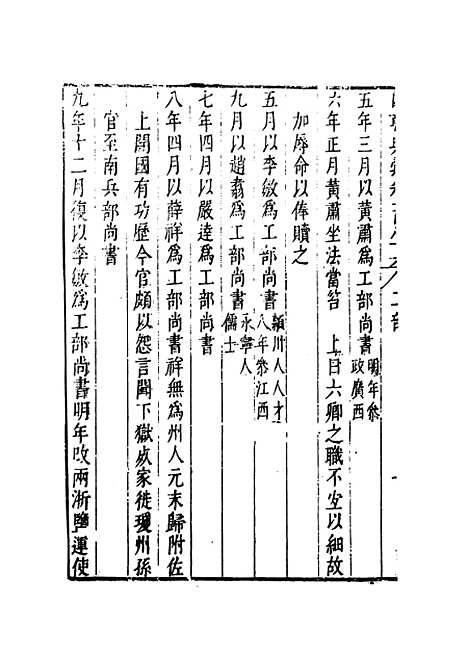 五年三月以黃肅爲工部尚書明年叅政廣西
六年正月黃肅坐法當笞 上曰六卿之職不宜以細故
加辱命以俸贖之
五月以李敏爲工部尚書潁川人人才八年叅江西
九月以趙翥爲工部尚書永寧人儒士
七年四月以嚴達爲工部尚書
八年四月以薛祥爲工部尚書祥無爲州人元末歸附佐
上開國有功歷今官頗以怨言聞下獄戍家徙瓊州孫
官至南兵部尚書
九年十二月復以李敏爲工部尚書明年改兩浙鹽運使